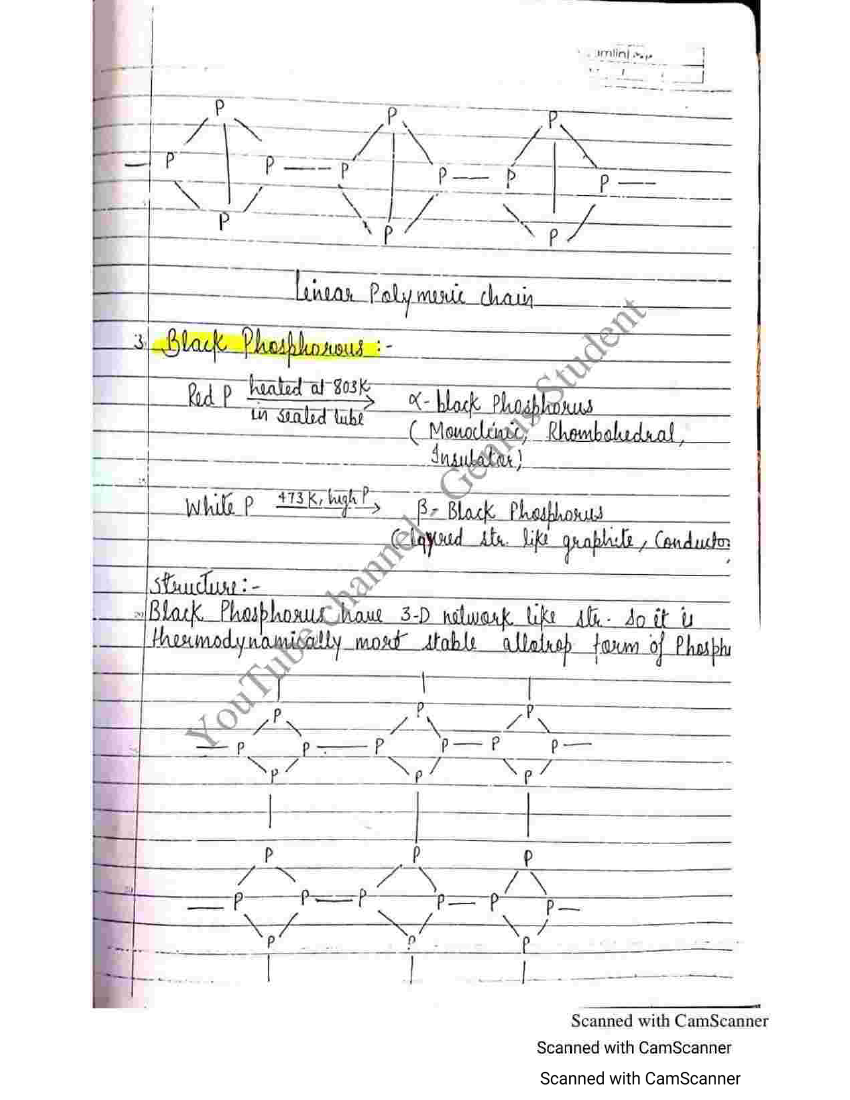 P P P
— P P — P P — P P —
P P P
Linear Polymeric chain
3. Black Phosphorous :-
Red P heated at 803K in sealed tube → α- black Phosphorus
( Monoclinic, Rhombohedral,
Insulator)
White P 473 K, high P → β- Black Phosphorus
(layered str. like graphite, Conductor
Structure:-
Black Phosphorus have 3-D network like str. so it is
thermodynamically most stable allotrop form of Phosph
P P P
— P P — P P — P P —
P P P
P P P
— P P — P P — P P —
P P P
YouTube channel - Genius Student
Scanned with CamScanner
Scanned with CamScanner
Scanned with CamScanner